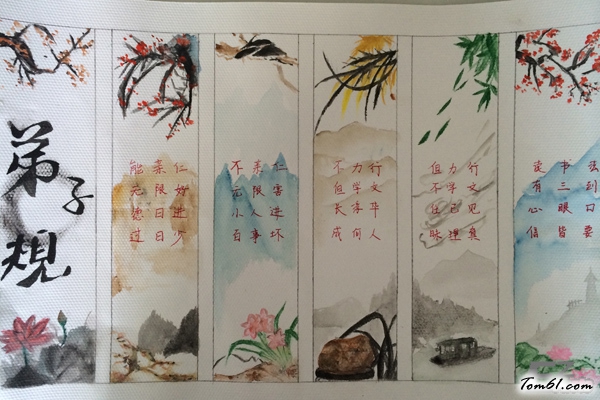 弟子規
能亲仁
无限好
德日进
过日少
不亲仁
无限害
小人进
百事坏
不力行
但学文
长浮华
成何人
但力行
不学文
任己见
昧理真
读书法
有三到
心眼口
信皆要
Tom61.com